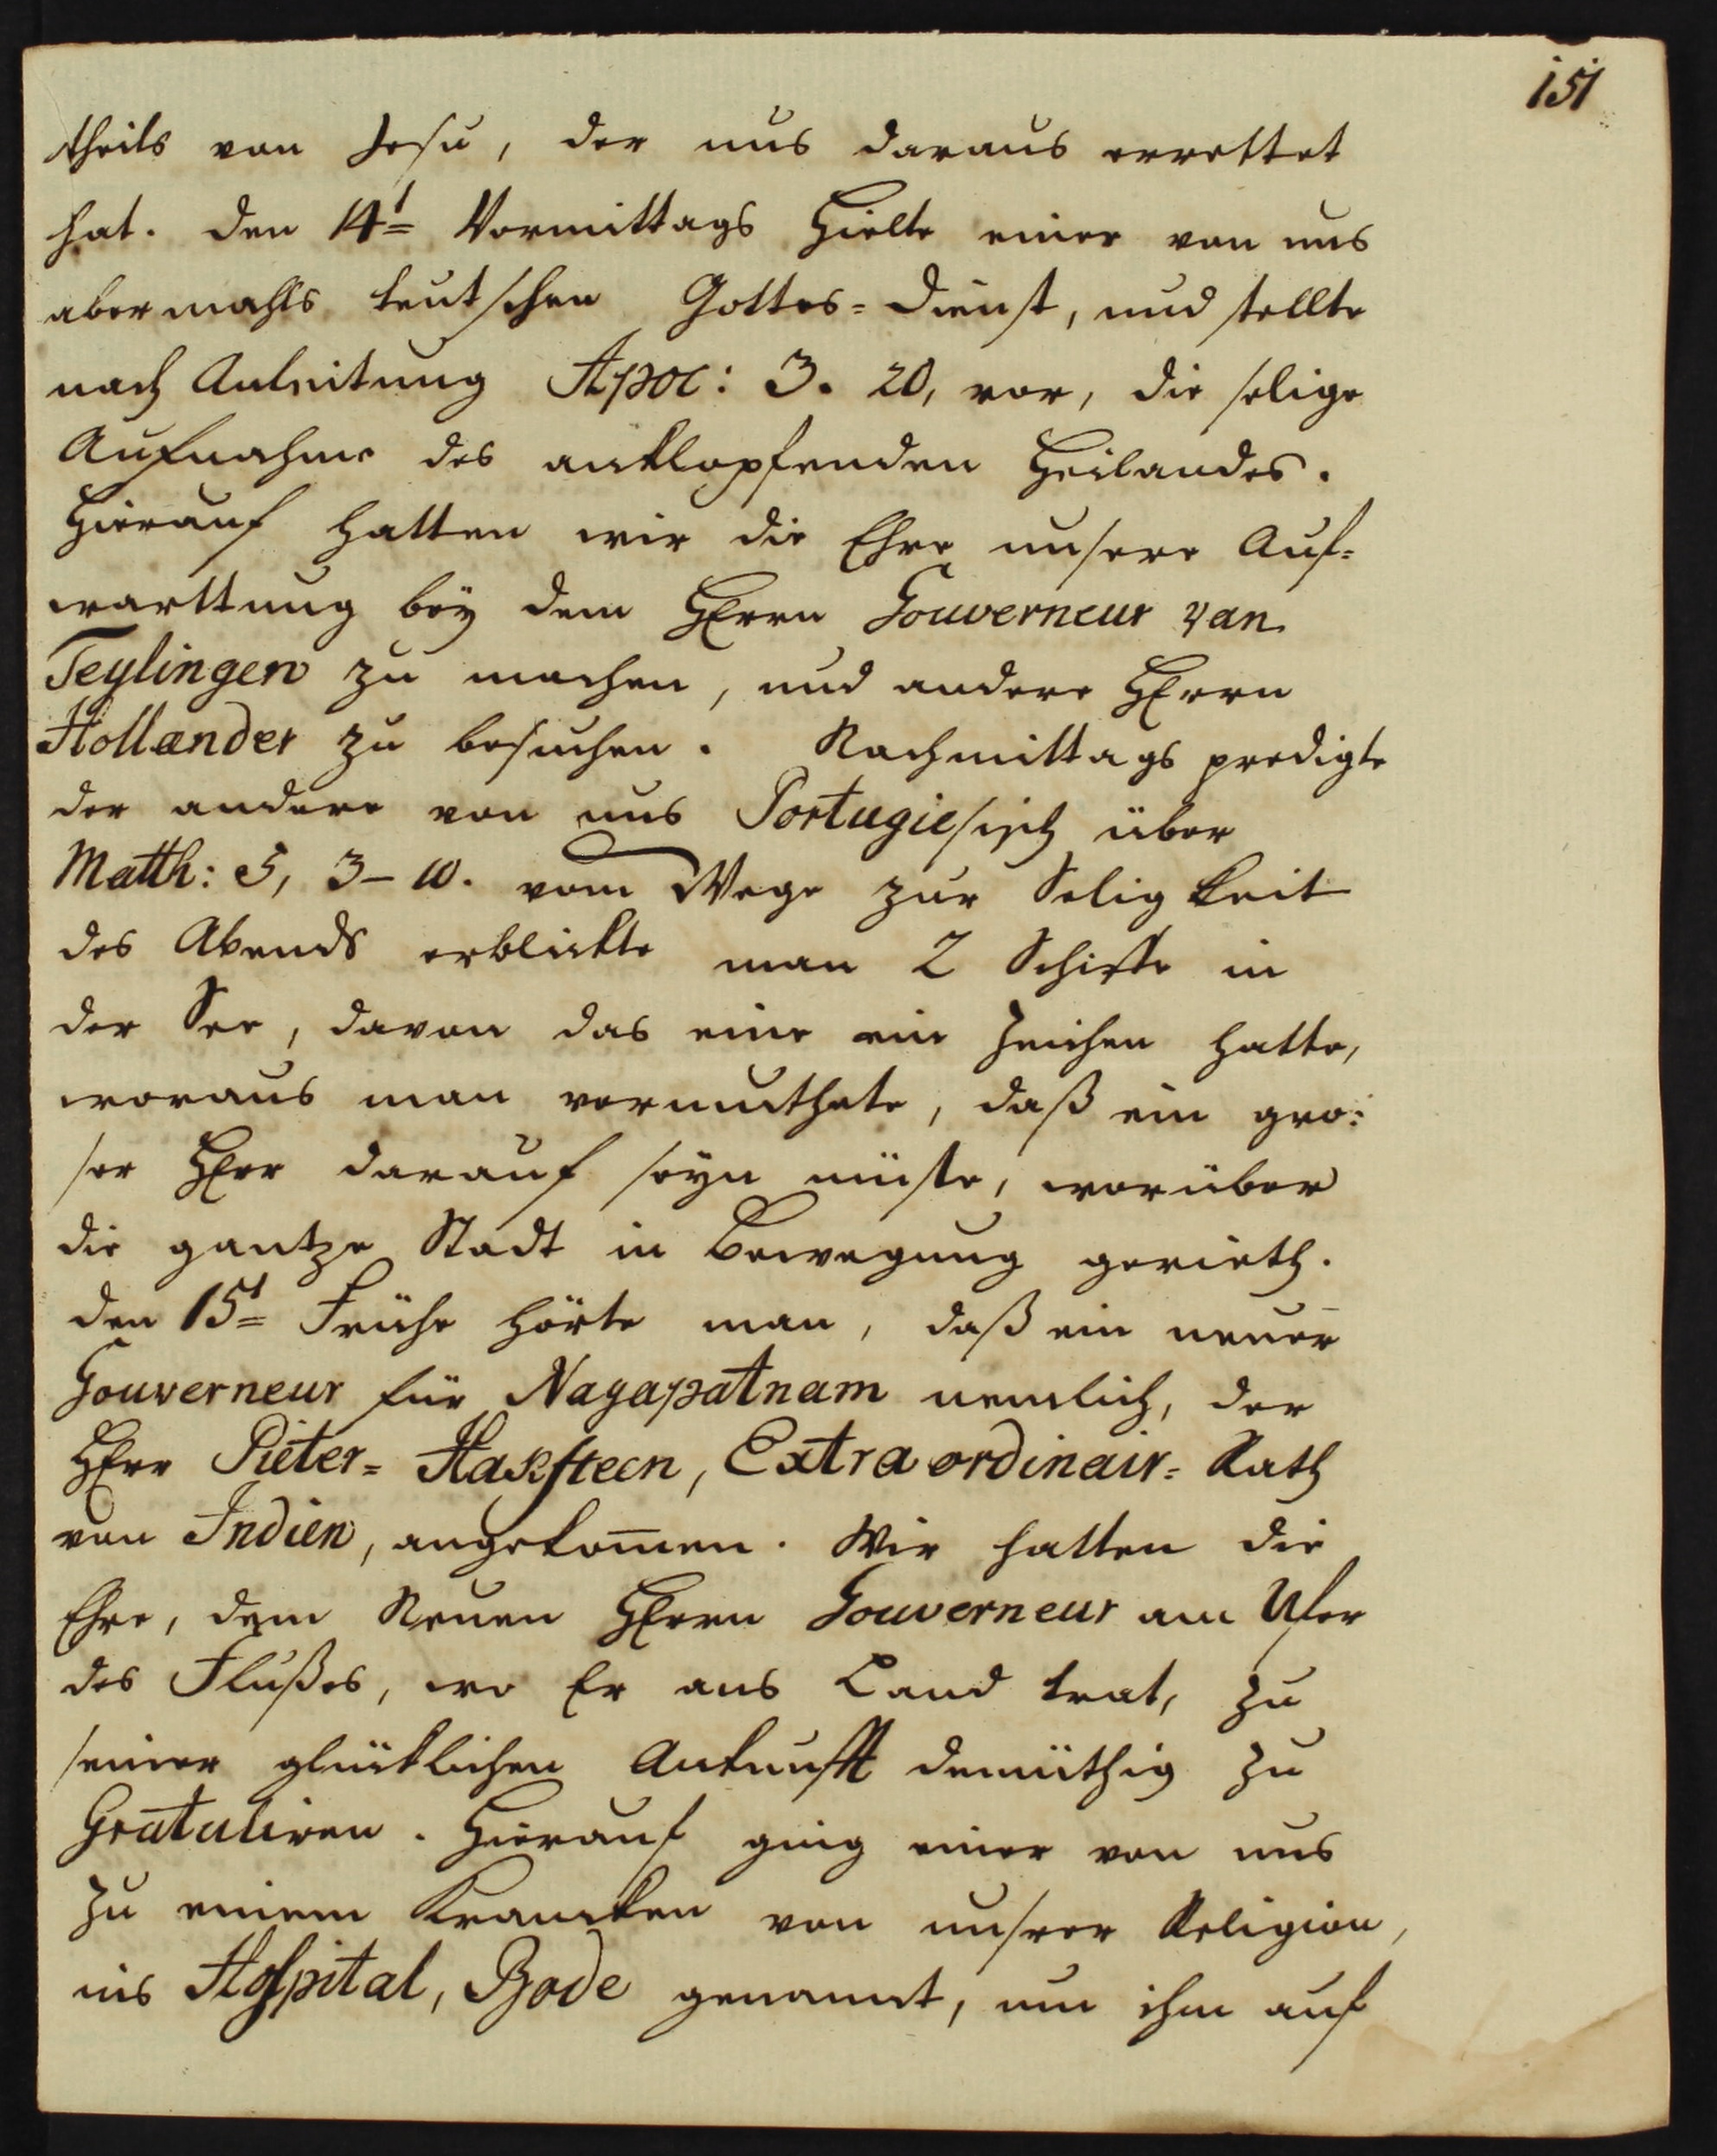 151
theils von Jesu, der uns daraus errettet
hat. den 14t= Vormittags hielte einer von uns
abermahls teutschen Gottes=dienst, und stellte
nach Anleitung Apoc: 3. 20, vor, die selige
Aufnahme des anklopfenden Heilandes.
Hierauf hatten wir die Ehre unsere Auf=
warttung bey dem HErrn Gouverneur van
Teylingen zu machen, und andere HErrn
Hollænder zu besuchen. Nachmittags predigte
der andere von uns Portugiesisch über
Matth: 5, 3-10. vom Wege zur Seligkeit
des Abends erblickte man 2 Schiffe in
der See, davon das eine ein Zeichen hatte,
woraus man vermuthete, daß ein gro=
ser HErr darauf seyn müste, worüber
die gantze Stadt in Bewegung gerieth.
den 15t= Frühe hörte man, daß ein neuer
Gouverneur für Nagapatnam nemlich, der
HErr Pieter=Haksteen, Extraordinair=Rath
von Indien, angekom̄en. Wir hatten die
Ehre, dem Neuen HErrn Gouverneur am Ufer
des Flußes, wo Er ans Land trat, zu
seiner glücklichen Ankunfft demüthig zu
Gratuliren. Hierauf ging einer von uns
zu einem Krancken von unsrer Religion,
ins Hospital, Bode genannt, um ihm auf